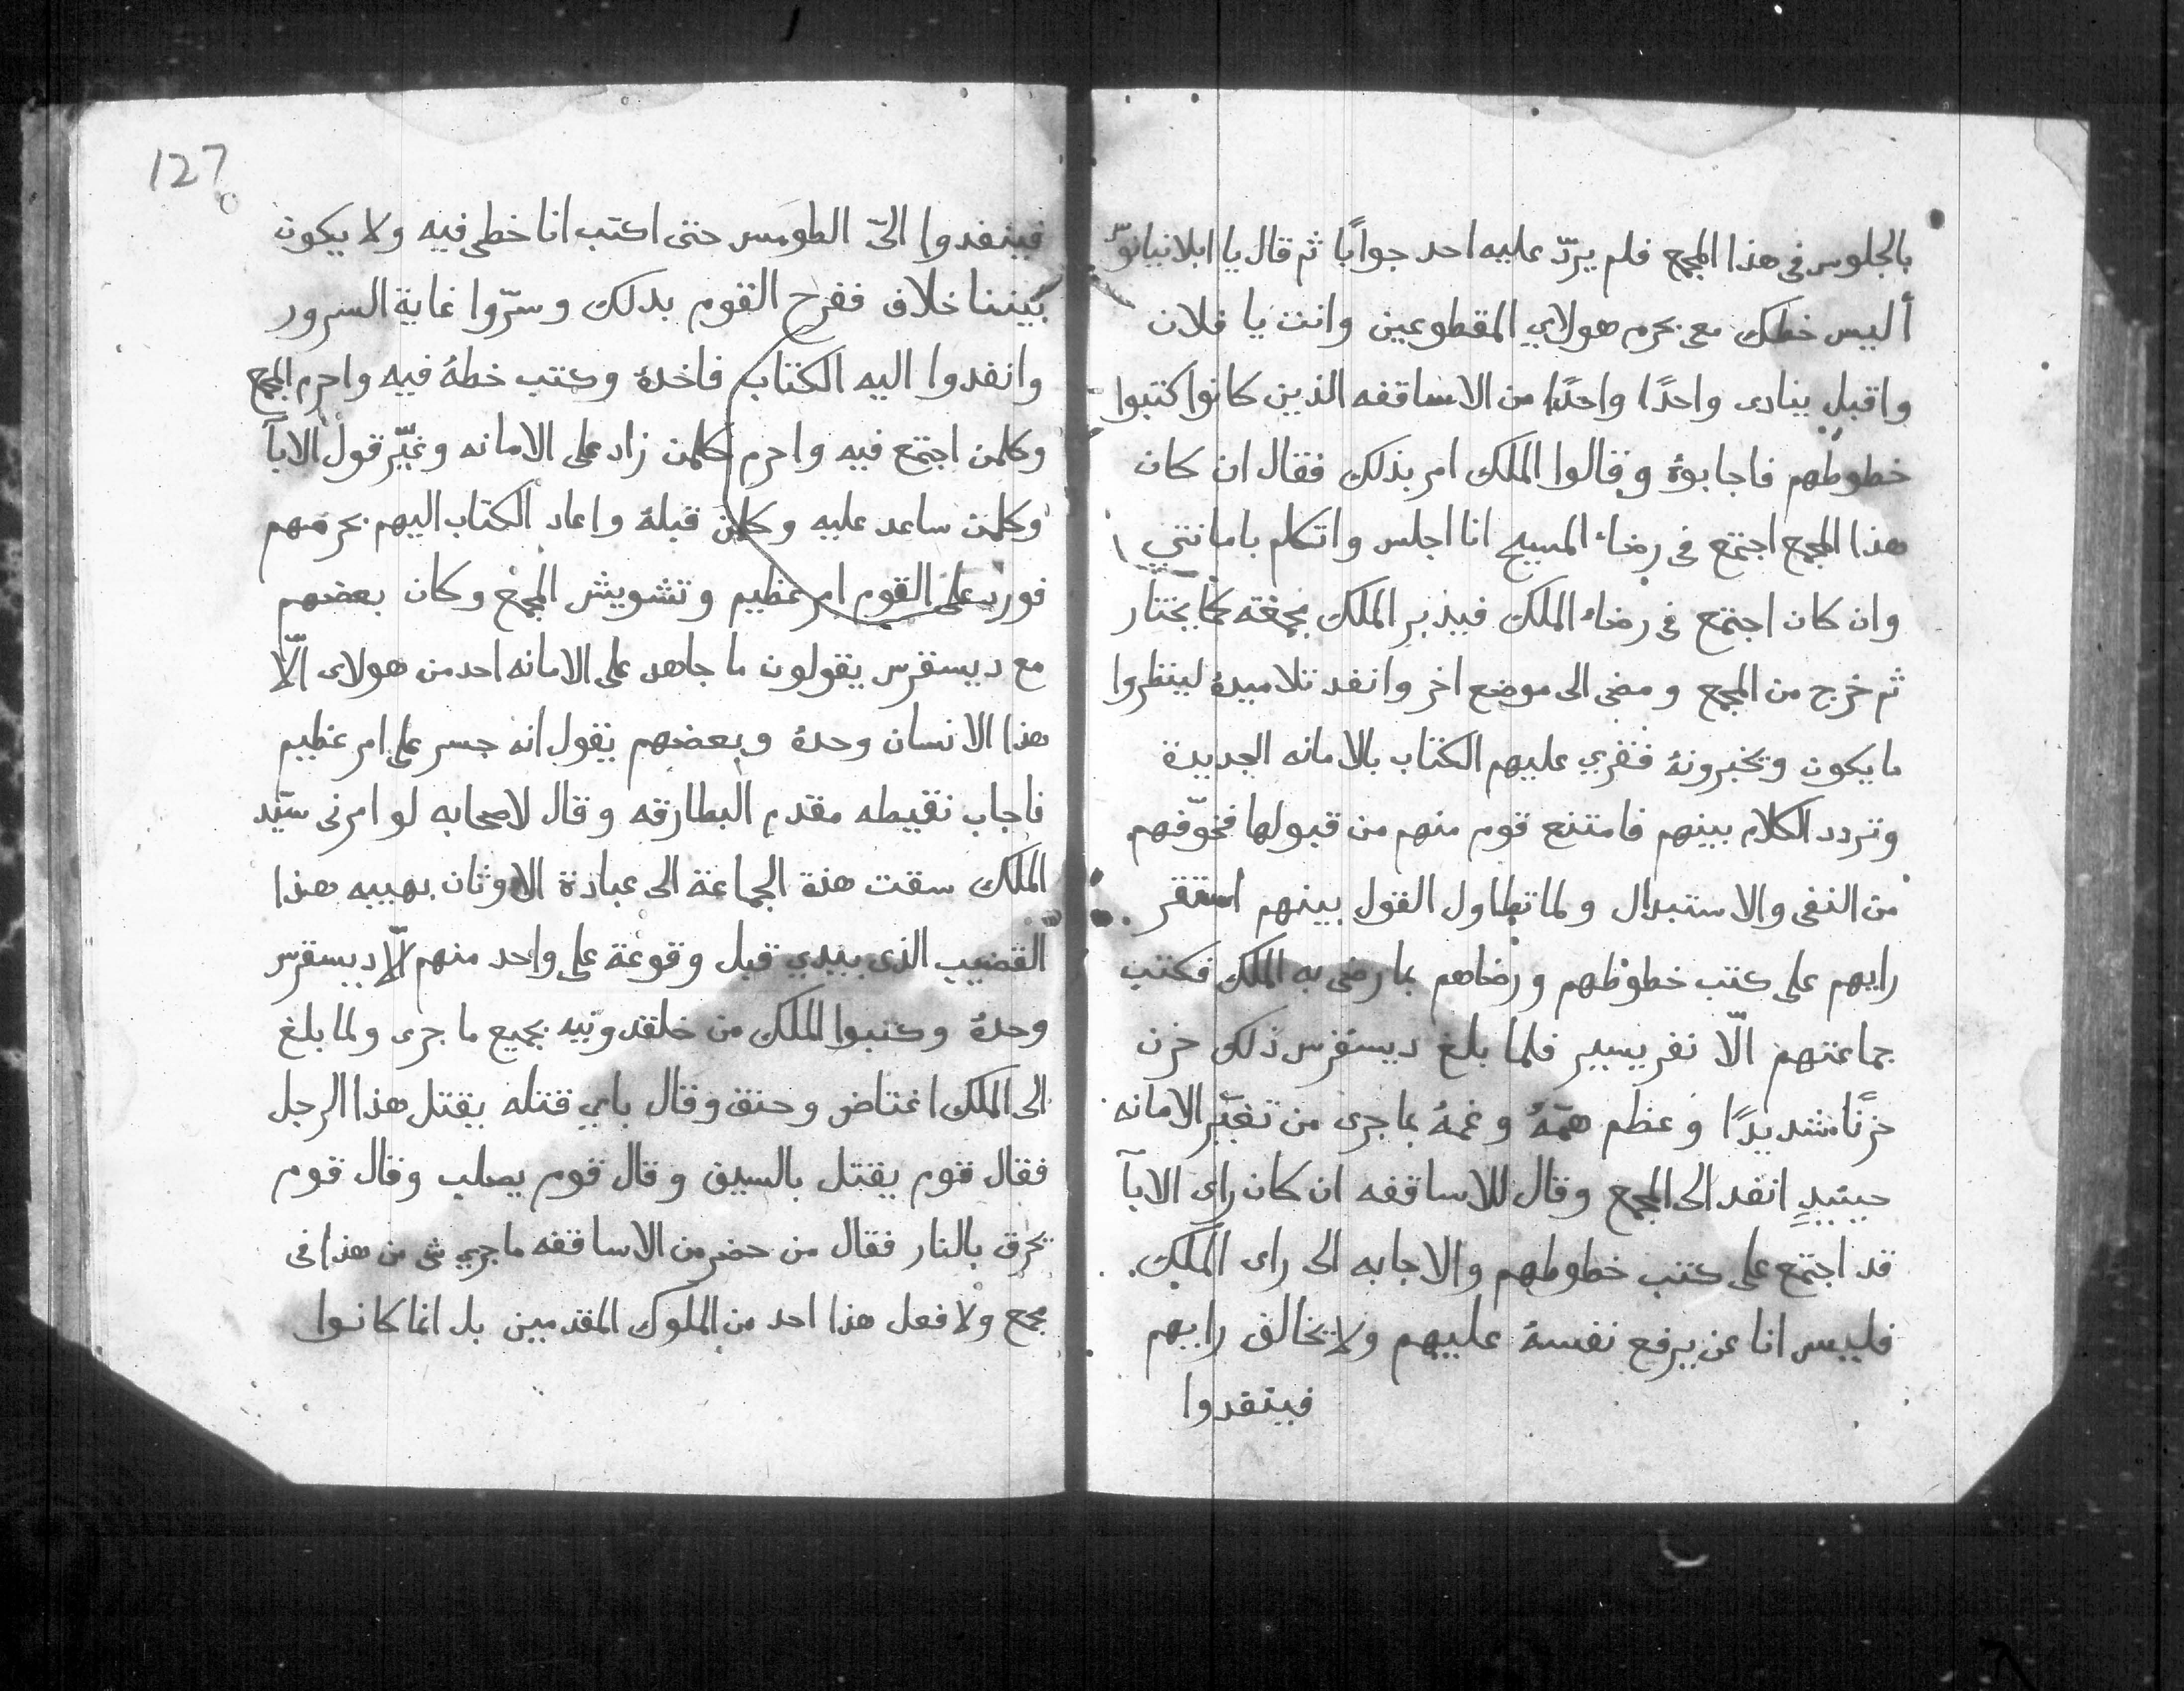 بالجلوس فى هذا المجمع فلم يردّ عليه احد جوابًا ثم قال يا ابلانيانوس
أليس خطك معى بحرم هولاي المقطوعين وانت يا فلان
واقبل ينادى واحدًا واحدًا من الاساقفه الذين كانوا كتبوا
خطوطهم فاجابوهُ وقالوا الملك امر بذلك فقال ان كان
هذا المجمع اجتمع فى رضاء المسيح انا اجلس واتكلم بامانتي
وان كان اجتمع فى رضاء الملك فيدبر الملك مجمعه كما يختار
ثم خرج من المجمع ومضى الى موضع اخر وانفد تلاميدهُ لينظروا
ما يكون ويخبرونهُ فقري عليهم الكتاب بالامانه الجديدة
وتردد الكلام بينهم فامتنع قوم منهم من قبولها فخوّفهم
من النفى والاستبدال ولما تطاول القول بينهم استقر
رايهم على كتب خطوطهم ورضاهم بما رضى به الملك فكتب
جماعتهم الّا نفر يسير فلما بلغ ديسقرس ذلك حزن
حزنًا شديدًا وعظم همّهُ وغمهُ بما جرى من تغيّر الامانه
حينيدٍ انفد الى المجمع وقال للاساقفه ان كان راى الابآ
قد اجتمع على كتب خطوطهم والاجابه الى راى الملك
فليس انا عن يرفع نفسهُ عليهم ولا يخالف رايهم
فينفدوا
127
فينفدوا الىّ الطومس حتى اكتب انا خطى فيه ولا يكون
بيننا خلاف ففرح القوم بدلك وسرّوا غاية السرور
وانفدوا اليه الكتاب فاخدهُ وكتب خطهُ فيه واحرم المجمع
وكلمن اجتمع فيه واحرم كلمن زاد على الامانه وغيّر قول الابآ
وكلمن ساعد عليه وكلمن قبلهُ واعاد الكتاب اليهم بحرمهم
فورد على القوم امر عظيم وتشويش المجمع وكان بعضهم
مع ديسقرس يقولون ما جاهد على الامانه احد من هولاى الّا
هذا الانسان وحدهُ وبعضهم يقول انه جسر على امر عظيم
فاجاب نقيطه مقدم البطارقه وقال لاصحابه لو امرنى سيّد
الملك سقت هذه الجماعة الى عبادة الاوثان بهيبه هذا
القضيب الذى بيدي قبل وقوعهُ على واحد منهم الّا ديسقرس
وحدهُ وكتبوا للملك من خلقدونيه بجميع ما جرى ولما بلغ
الى الملك اغتاض وحنق وقال باي قتله يقتل هذا الرجل
فقال قوم يقتل بالسيف وقال قوم يصلب وقال قوم
يحرق بالنار فقال من حضر من الاساقفه ما جري شى من هذا فى
مجمع ولا فعل هذا احد من الملوك المقدمين بل انما كانوا